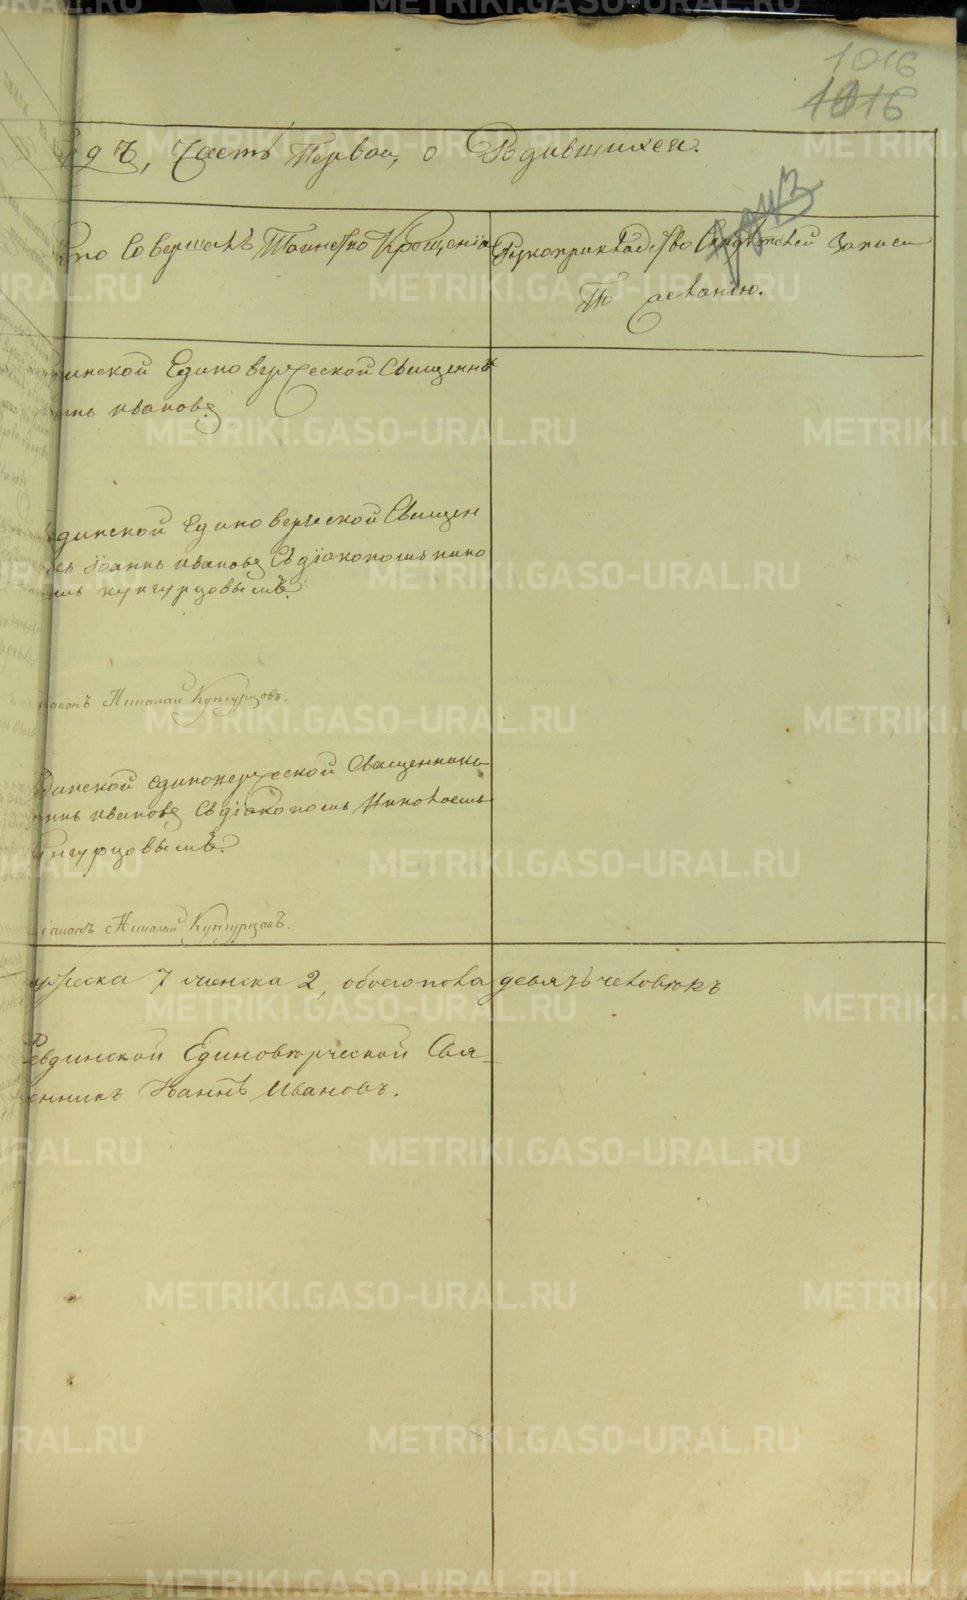 1016
1016
годъ, Часть Первая, о Родившихся.
Кто Совершалъ Таинство Крещенія
Рукоприкладство Свидѣтелей Записи
По желанію.
динской Единоверческой Священнъ
аннъ ивановъ
вдинской Единоверческой Священ
къ іоаннъ ивановъ Съ діакономъ нико
емъ кунгурцовымъ.
діаконъ Николай Кунгурцовъ.
вдинской единоверческой Священникъ
аннъ ивановъ Съ діакономъ Николаемъ
кунгурцовымъ.
діаконъ Николай Кунгурцовъ.
мужеска 7 женска 2, обоего пола девять человѣкъ
Ревдинской Единовѣрческой Свя-
щенникъ Іоаннъ Ивановъ.
METRIKI.GASO-URAL.RU